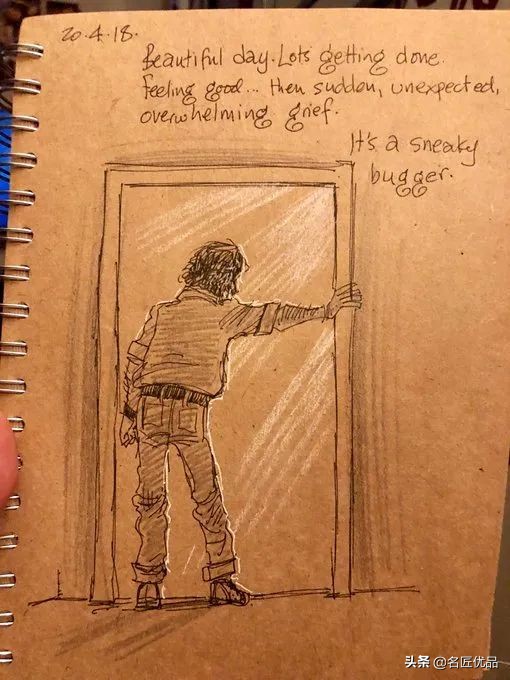 20.4.18.
Beautiful day. Lots getting done.
Feeling good... then sudden, unexpected,
overwhelming grief.
It's a sneaky
bugger.
头条 @名匠优品